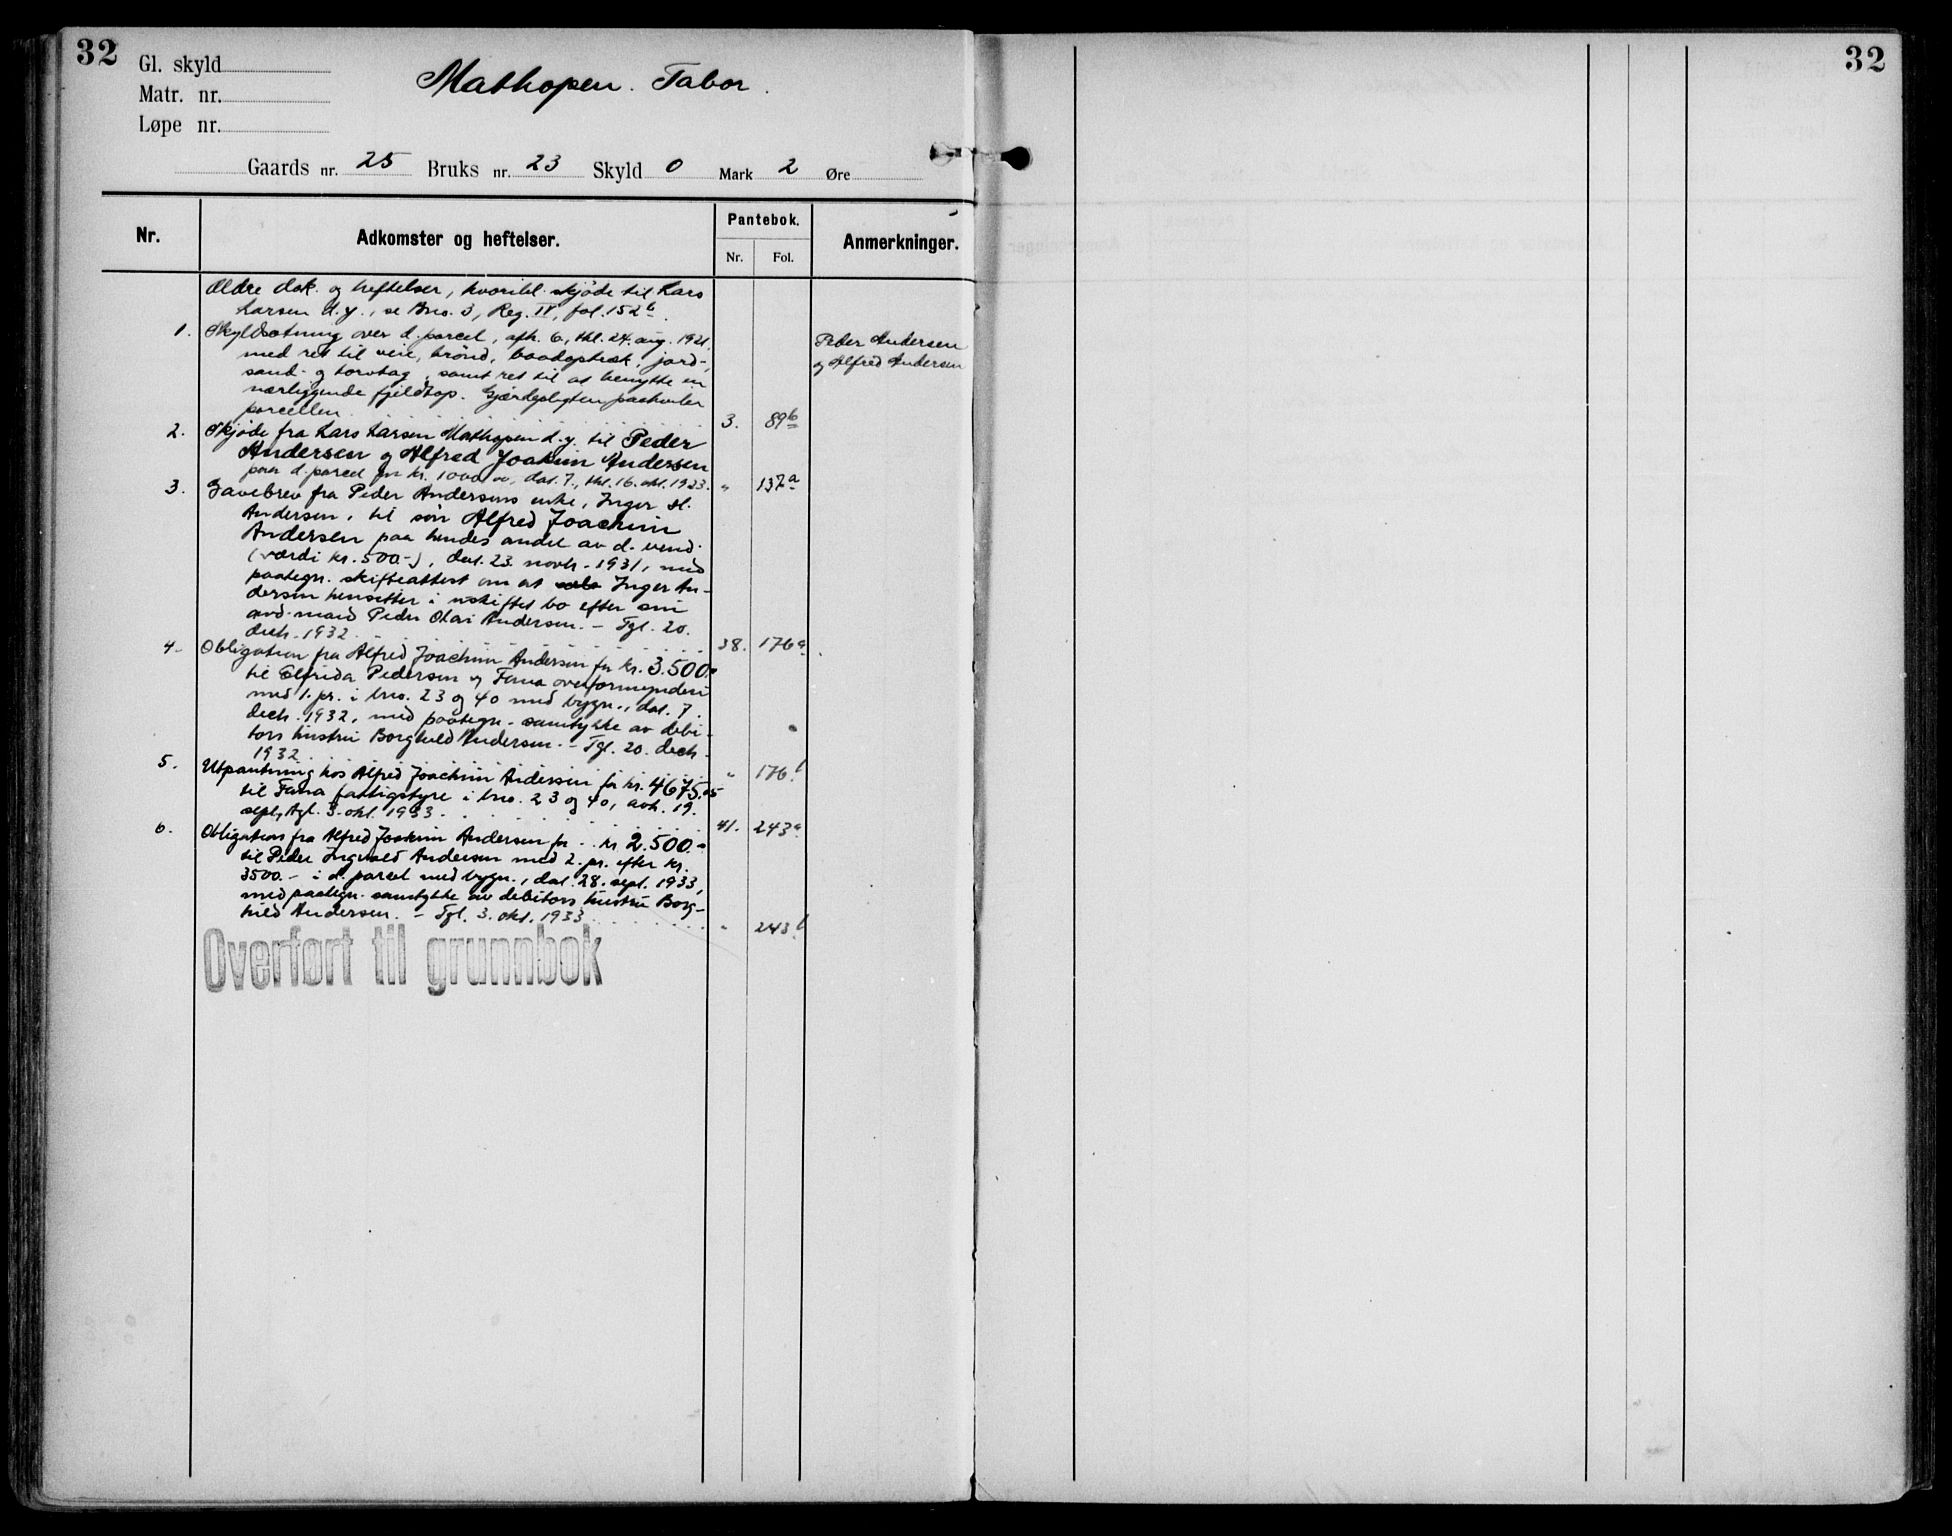 32
Gl. skyld
Matr. nr.
Løpe nr.
Mathopen. Tabor.
Gaards nr. 25 Bruks nr. 23 Skyld 0 Mark 2 Øre
Nr. Adkomster og heftelser. Pantebok. Nr. Fol. Anmerkninger.
Ældre dok. og heftelser, hvoribl. skjøde til Lars
Larsen d.y., se Bno. 3, Reg. IV, fol. 152b.
1. Skyldsetning over d. parcel, afh. 6, thl. 24. aug. 1921,
med ret til veie, brönd, baadoptræk, jord-,
sand- og torvtag, samt ret til at benytte en
nærliggende fjeldtop. Gjærdepligten paahviler
parcellen 3. 89b
Peder Andersen
og Alfred Andersen
2. Skjøde fra Lars Larsen Mathopen d.y. til Peder
Andersen og Alfred Joakim Andersen
paa d. parcel for kr. 1000.00, dat. 7., thl. 16. okt. 1923. " 137a
3. Gavebrev fra Peder Andersens enke, Inger H.
Andersen, til sön Alfred Joachim
Andersen paa hendes andel av d. eiend.
(værdi kr. 500.-), dat. 23. novbr. 1931, med
paategn. skifteattest om at Inger An-
dersen hensitter i uskiftet bo efter sin
avd. mand Peder Olai Andersen. - Tgl. 20.
decb. 1932 38. 176a
4. Obligation fra Alfred Joachim Andersen for kr. 3.500.-
til Elfrida Pedersen og Fana overformynderi
med 1. pr. i bno. 23 og 40 med bygn., dat. 7.
decb. 1932, med paategn. samtykke av debi-
tors hustru Borghild Andersen. - Tgl. 20. decb.
1932 " 176b
5. Utpantning hos Alfred Joachim Andersen for kr. 4675.05
til Fana fattigstyre i bno. 23 og 40, avh. 19.
sept., tgl. 3. okt. 1933 41. 243a
6. Obligation fra Alfred Joakim Andersen for kr. 2.500.-
til Peder Ingvald Andersen med 2. pr. efter kr.
3500.- i d. parcel med bygn., dat. 28. sept. 1933,
med paategn. samtykke av debitors hustru Borg-
hild Andersen. - Tgl. 3. okt. 1933 " 243b
Overført til grunnbok
32